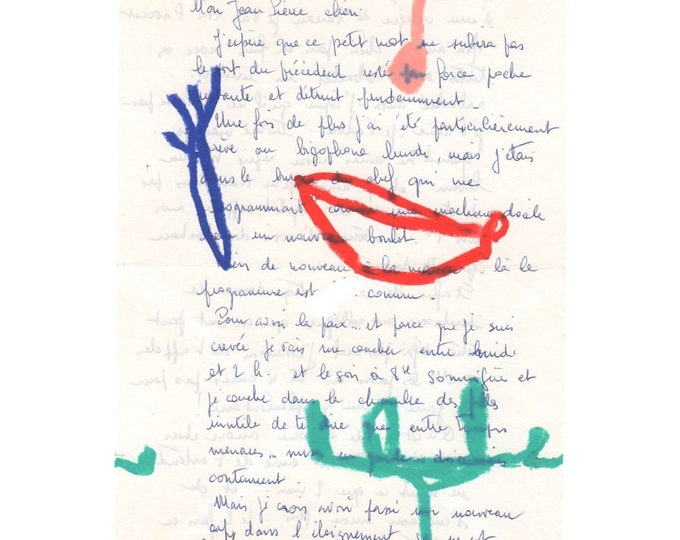 Mon Jean Pierre chéri.
J'espère que ce petit mot ne subira pas
le sort du précédent resté force poche
et détruit prudemment.
Une fois de plus j'ai été particulièrement
brève au bigophone lundi, mais j'étais
dans le bureau du chef qui me
programmait comme une machine docile
un nouveau boulot.
Rien de nouveau à la maison là le
programme est connu.
Pour avoir la paix.. et parce que je suis
crevée je vais me coucher entre
et 2 h. et le soir à 8h somnifère et
je couche dans la chambre des filles
inutile de te dire que entre temps
menaces..
contament
Mais je crois avoir passé un nouveau
cap dans l'éloignement